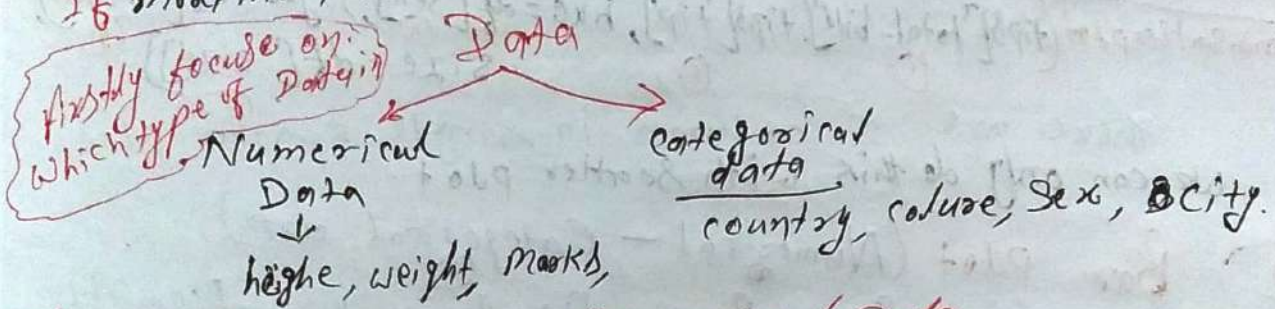 Data
firstly focuse on
which type of Data in
Numerical
Data
heighe, weight, marks,
categorical
data
country, colure, Sex, city.